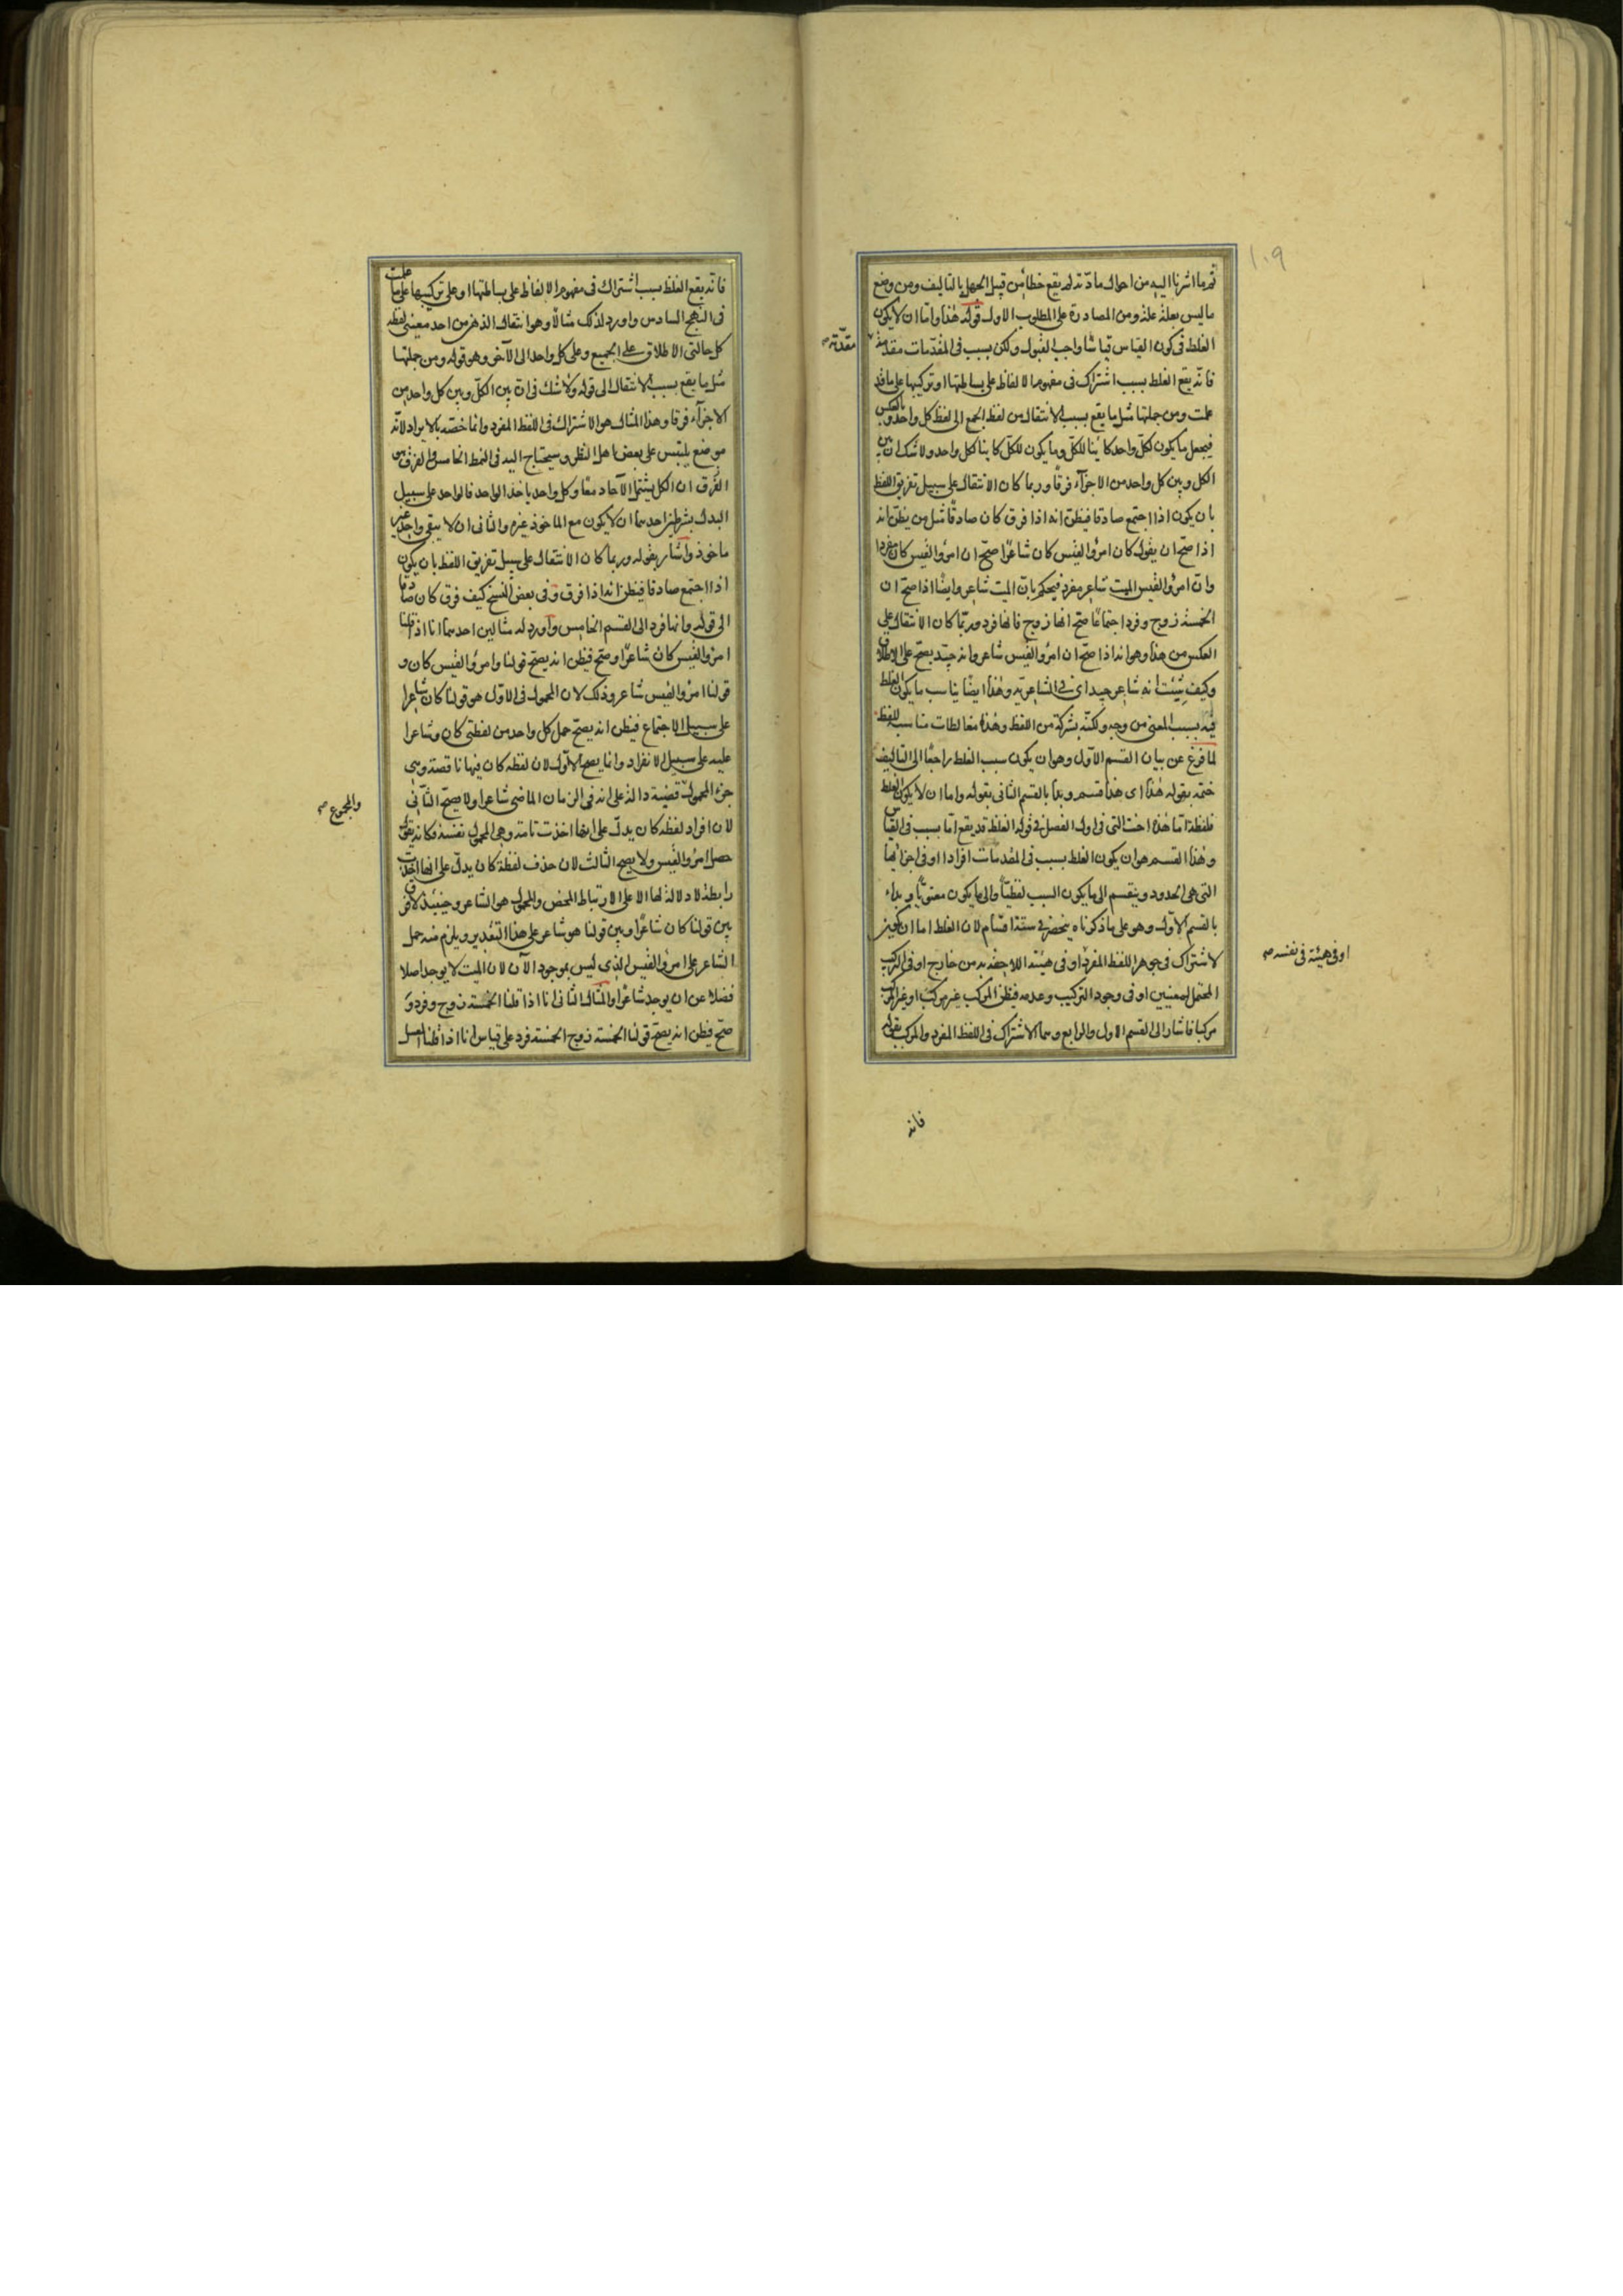 ١٠٩
ثم ما اشرنا اليه من احوال مادته لم يقع خطأ من قبل الجهل بالتاليف ومن وضع
ما ليس بعلة علة ومن المصادرة على المطلوب الاول قوله هذا واما ان لا يكون
الغلط فى كون القياس قياسا واجب القبول ولكن بسبب فى المقدمات مقدمة
مقدّمة
فانه يقع الغلط بسبب اشتراك فى مفهوم الالفاظ على بساطتها او تركيبها على ما قد
علمت ومن جملتها مثل ما يقع بسبب الانتقال من لفظ الجمع الى لفظ كل واحد وبالعكس
فيجعل ما يكون لكل واحد كائنا للكل وما يكون للكل كاينا لكل واحد ولا شك ان بين
الكل وبين كل واحد من الاجزآء فرقا وربما كان الانتقال على سبيل تفريق اللفظ
بان يكون اذا اجتمع صادقا فيظن انه اذا فرق كان صادقا مثل من يظن انه
اذا صح ان يقول كان امرؤ القيس كان شاعرا صح ان امرؤ القيس كان مفردا
وان امرؤ القيس الميت شاعر مفرد فيحكم بان الميت شاعر وايضا اذا صح ان
الخمسة زوج وفرد اجتماعا صح انها زوج فانها فرد وربما كان الانتقال على
العكس من هذا وهو انه اذا صح ان امرؤ القيس شاعر وانه جيد يصح على الاطلاق
وكيف شئت انه شاعر جيد اى فى الشاعرية وهذا ايضا يناسب ما يكون الغلط
فيه بسبب المعنى من وجه ولكنه بشركة من اللفظ وهذه مغالطات مناسبة للفظ
لما فرغ عن بيان القسم الاول وهو ان يكون سبب الغلط راجعا الى التاليف
ختمه بقوله هذا اى هذا قسم وبدأ بالقسم الثانى بقوله واما ان لا يكون الغلط
فلفظة اما هذه اخت التى فى اول الفصل فى قوله الغلط قد يقع اما بسبب فى القياس
وهذا القسم هو ان يكون الغلط بسبب فى المقدمات افرادا او فى اجزائها
التى هى الحدود وينقسم الى ما يكون السبب لفظيا والى ما يكون معنويا وبدأ
بالقسم الاول وهو على ما ذكرناه ينحصر فى ستة اقسام لان الغلط اما ان يكون
لاشتراك فى جوهر اللفظ المفرد او فى هيئته اللاحقة به من خارج او فى التركيب
او فى هيئة فى نفسه
المحتمل لمعنيين او فى وجود التركيب وعدمه فيظن المركب غير مركب او غير المركب
مركبا فاشار الى القسم الاول والرابع وهما الاشتراك فى اللفظ المفرد والمركب بقوله
فانه
فانه يقع الغلط بسبب اشتراك فى مفهوم الالفاظ على بساطتها او على تركيبها على ما علمت
فى النهج السادس واورد لذلك مثالا وهو انتقال الذهن من احد معنيى لفظة
كل حالتى الاطلاق على الجميع وعلى كل واحد الى الآخر وهو قوله ومن جملتها
مثل ما يقع بسبب الانتقال الى قوله ولا شك فى ان بين الكل وبين كل واحد من
الاجزآء فرقا وهذا المثال هو الاشتراك فى اللفظ المفرد وانما خصّه بالايراد لانه
موضع يلتبس على بعض اهل النظر وسيحتاج اليه فى النمط الخامس والفرق بين
الفرق ان الكل يشتمل الآحاد معا وكل واحد ياخذ الواحد فالواحد على سبيل
البدل بشرطين احدهما ان لا يكون مع الماخوذ غيره والثانى ان لا يبقى واحد غير
ماخوذ واشار بقوله وربما كان الانتقال على سبيل تفريق اللفظ بان يكون
اذا اجتمع صادقا فيظن انه اذا فرق وفى بعض النسخ كيف فرق كان صادقا
الى قوله وانها فرد الى القسم الخامس واورد له مثالين احدهما انا اذا قلنا
امرؤ القيس كان شاعرا وصح فيظن انه يصح قولنا وامرؤ القيس كان و
قولنا امرؤ القيس شاعر وذلك لان المحمول فى الاول هو قولنا كان شاعرا
على سبيل الاجتماع فيظن انه يصح حمل كل واحد من لفظتى كان وشاعرا
عليه على سبيل الانفراد وانما يصح الاول لان لفظة كان فيها ناقصة وهى
جزء المحمول قضية دالة على انه فى الزمان الماضى شاعرا ولا يصح الثانى
والمجموع
لان افراد لفظة كان يدل على انها اخذت تامة وهى المحمول نفسه فكانه يقول
حصل امرؤ القيس ولا يصح الثالث لان حذف لفظة كان يدل على انها اخذت
رابطة لا دلالة لها الا على الارتباط المحض والمحمول هو الشاعر وحينئذ لا فرق
بين قولنا كان شاعرا وبين قولنا هو شاعر على هذا التقدير ويلزم منه حمل
الشاعر على امرؤ القيس الذى ليس بموجود الآن لان الميت لا يوجد اصلا
فضلا عن ان يوجد شاعرا والمثال الثانى انا اذا قلنا الخمسة زوج وفرد و
صح فيظن انه يصح قولنا الخمسة زوج الخمسة فرد على قياس انا اذا قلنا العسل